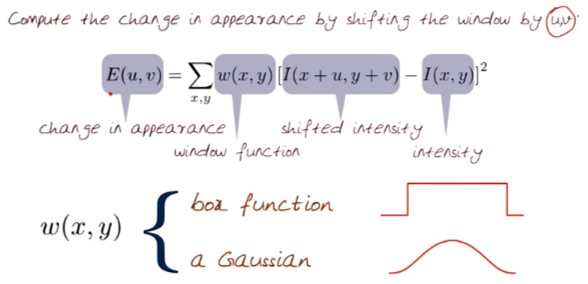 Compute the change in appearance by shifting the window by u,v
E(u, v) = ∑ x,y w(x, y) [I(x + u, y + v) − I(x, y)]²
change in appearance
shifted intensity
window function
intensity
w(x, y) {
box function
a Gaussian